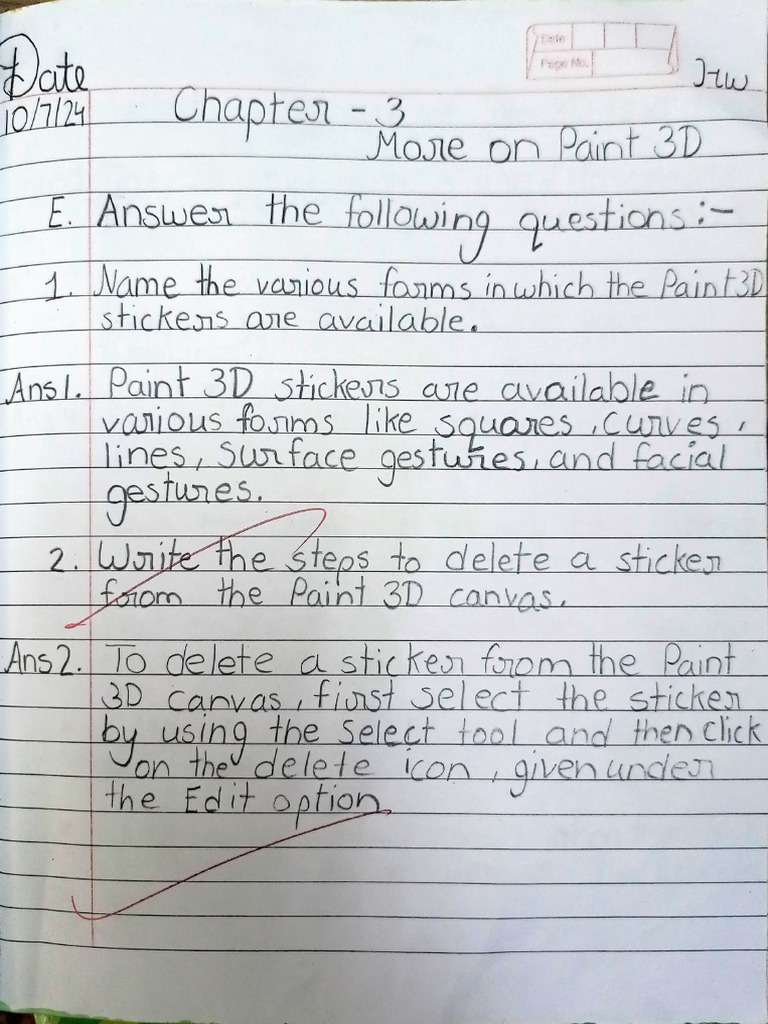 Date
Page No.
Date
10/7/24
H.W
Chapter - 3
More on Paint 3D
E. Answer the following questions:-
1. Name the various forms in which the Paint 3D
stickers are available.
Ans1. Paint 3D stickers are available in
various forms like squares, curves,
lines, surface gestures, and facial
gestures.
2. Write the steps to delete a sticker
from the Paint 3D canvas.
Ans2. To delete a sticker from the Paint
3D canvas, first select the sticker
by using the select tool and then click
on the delete icon, given under
the Edit option